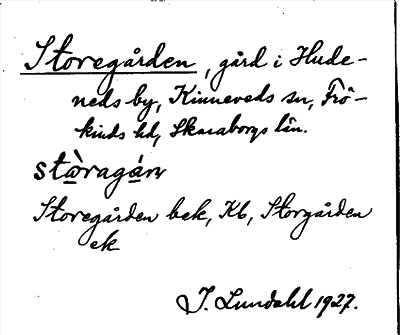 Storegården, gård i Hude-
neds by, Kinneveds sn, Frö-
kinds hd, Skaraborgs län.
stòragán
Storegården bek, Kb, Storgården
ek
I. Lundahl 1927.